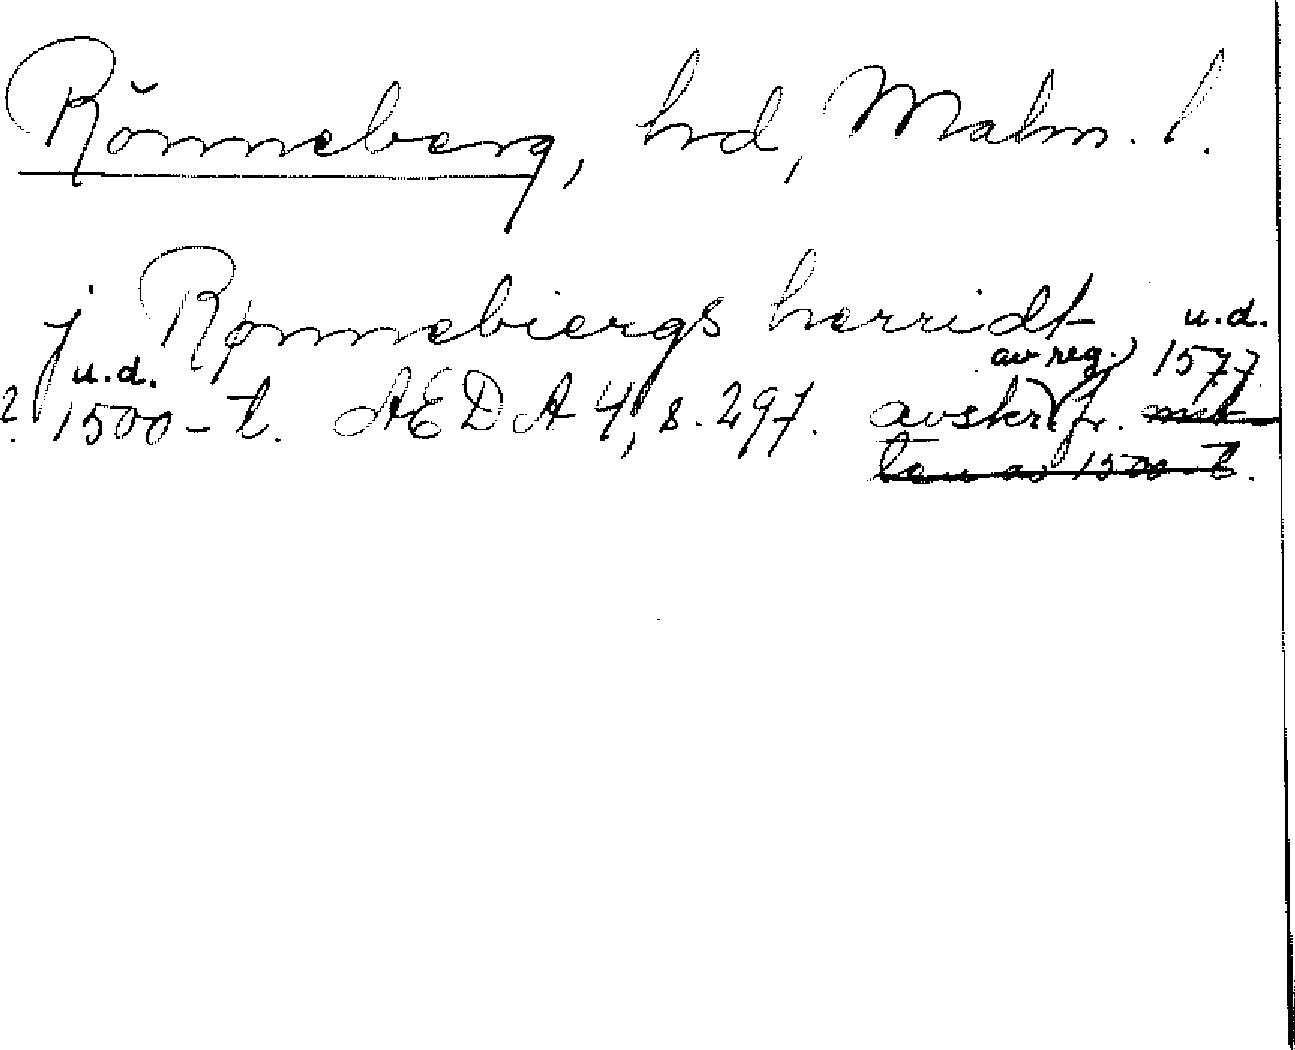 Rönneberg, hd, Malm. l.
j Rønnebiergs herridt u.d.
u.d. av reg.) 1577
? 1500-t. AEDA 4, s. 297. avskr. fr. mit-
ten av 1500-t.